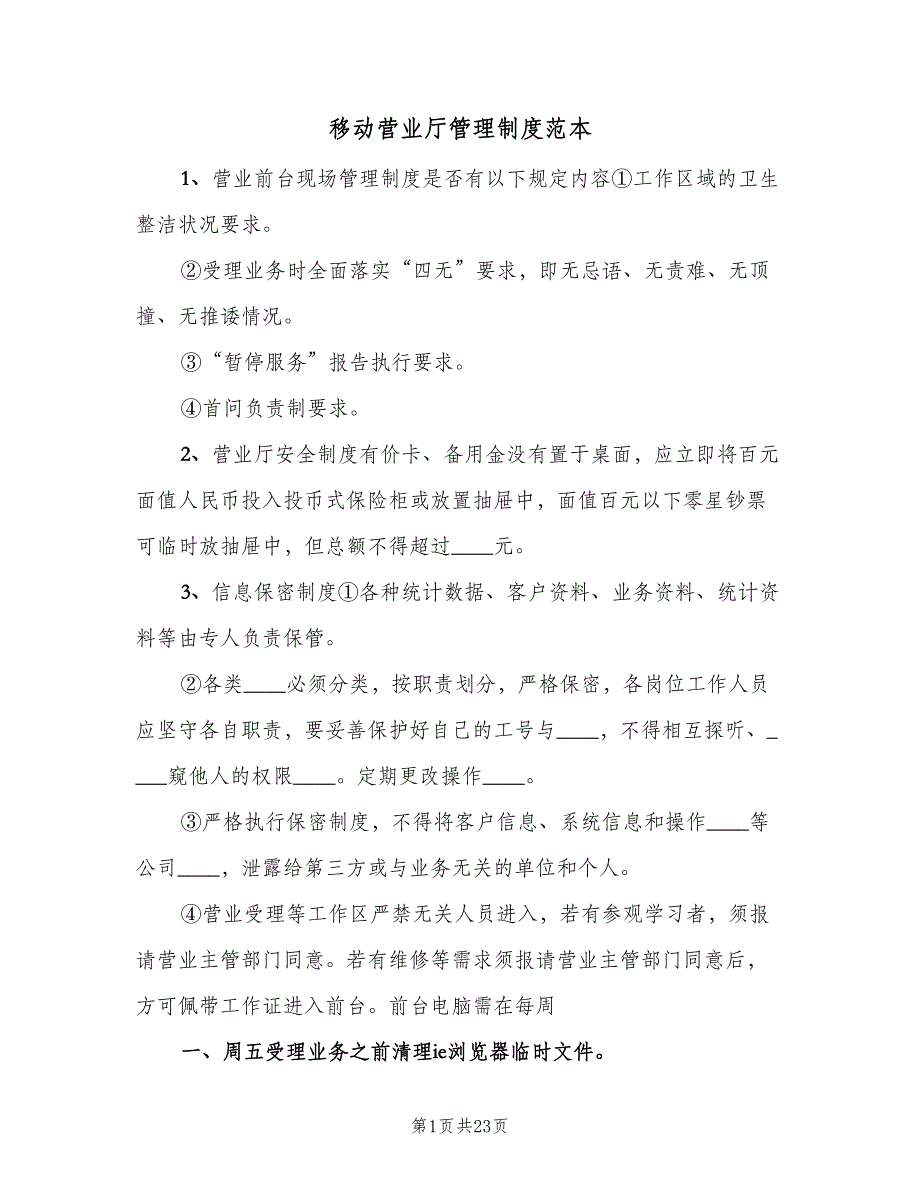 移动营业厅管理制度范本
1、营业前台现场管理制度是否有以下规定内容①工作区域的卫生
整洁状况要求。
②受理业务时全面落实“四无”要求，即无忌语、无责难、无顶
撞、无推诿情况。
③“暂停服务”报告执行要求。
④首问负责制要求。
2、营业厅安全制度有价卡、备用金没有置于桌面，应立即将百元
面值人民币投入投币式保险柜或放置抽屉中，面值百元以下零星钞票
可临时放抽屉中，但总额不得超过____元。
3、信息保密制度①各种统计数据、客户资料、业务资料、统计资
料等由专人负责保管。
②各类____必须分类，按职责划分，严格保密，各岗位工作人员
应坚守各自职责，要妥善保护好自己的工号与____，不得相互探听、_
___窥他人的权限____。定期更改操作____。
③严格执行保密制度，不得将客户信息、系统信息和操作____等
公司____，泄露给第三方或与业务无关的单位和个人。
④营业受理等工作区严禁无关人员进入，若有参观学习者，须报
请营业主管部门同意。若有维修等需求须报请营业主管部门同意后，
方可佩带工作证进入前台。前台电脑需在每周
一、周五受理业务之前清理ie浏览器临时文件。
第1页共23页